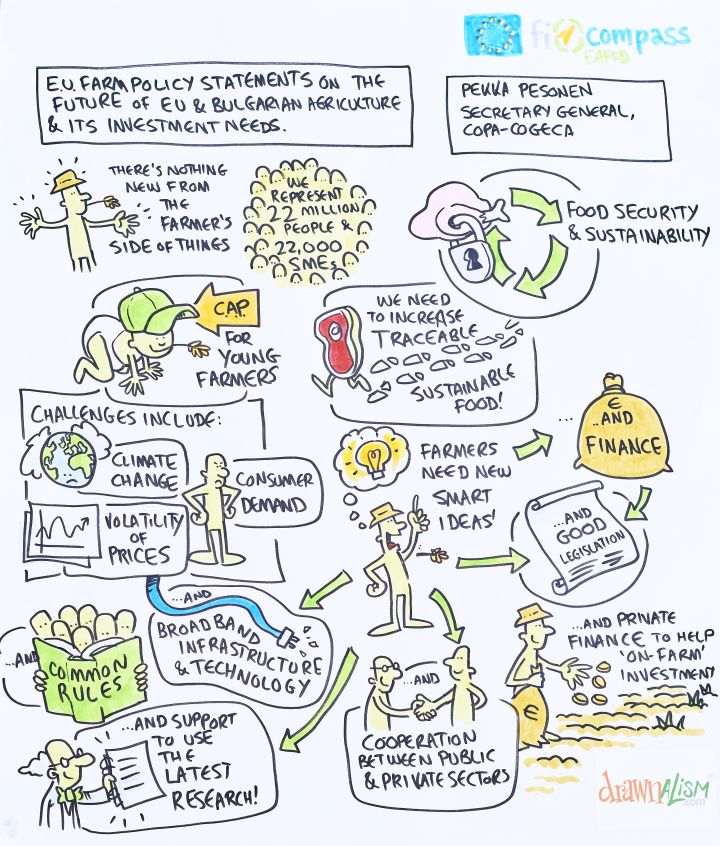 fi compass
EAFRD
E.U. FARM POLICY STATEMENTS ON THE
FUTURE OF EU & BULGARIAN AGRICULTURE
& ITS INVESTMENT NEEDS.
PEKKA PESONEN
SECRETARY GENERAL,
COPA-COGECA
THERE'S NOTHING
NEW FROM
THE
FARMER'S
SIDE OF THINGS
WE
REPRESENT
22 MILLION
PEOPLE &
22,000
SMEs
FOOD SECURITY
& SUSTAINABILITY
C.A.P.
FOR
YOUNG
FARMERS
WE NEED
TO INCREASE
TRACEABLE
SUSTAINABLE
FOOD!
CHALLENGES INCLUDE:
CLIMATE
CHANGE
CONSUMER
DEMAND
VOLATILITY
OF
PRICES
FARMERS
NEED NEW
SMART
IDEAS'
...
€
..AND
FINANCE
...AND
GOOD
LEGISLATION
...AND
BROADBAND
INFRASTRUCTURE
& TECHNOLOGY
...AND
COMMON
RULES
...AND PRIVATE
FINANCE TO HELP
'ON-FARM'
INVESTMENT
€
...AND
COOPERATION
BETWEEN PUBLIC
& PRIVATE SECTORS
...AND SUPPORT
TO USE
THE
LATEST
RESEARCH!
drawnalism
.com